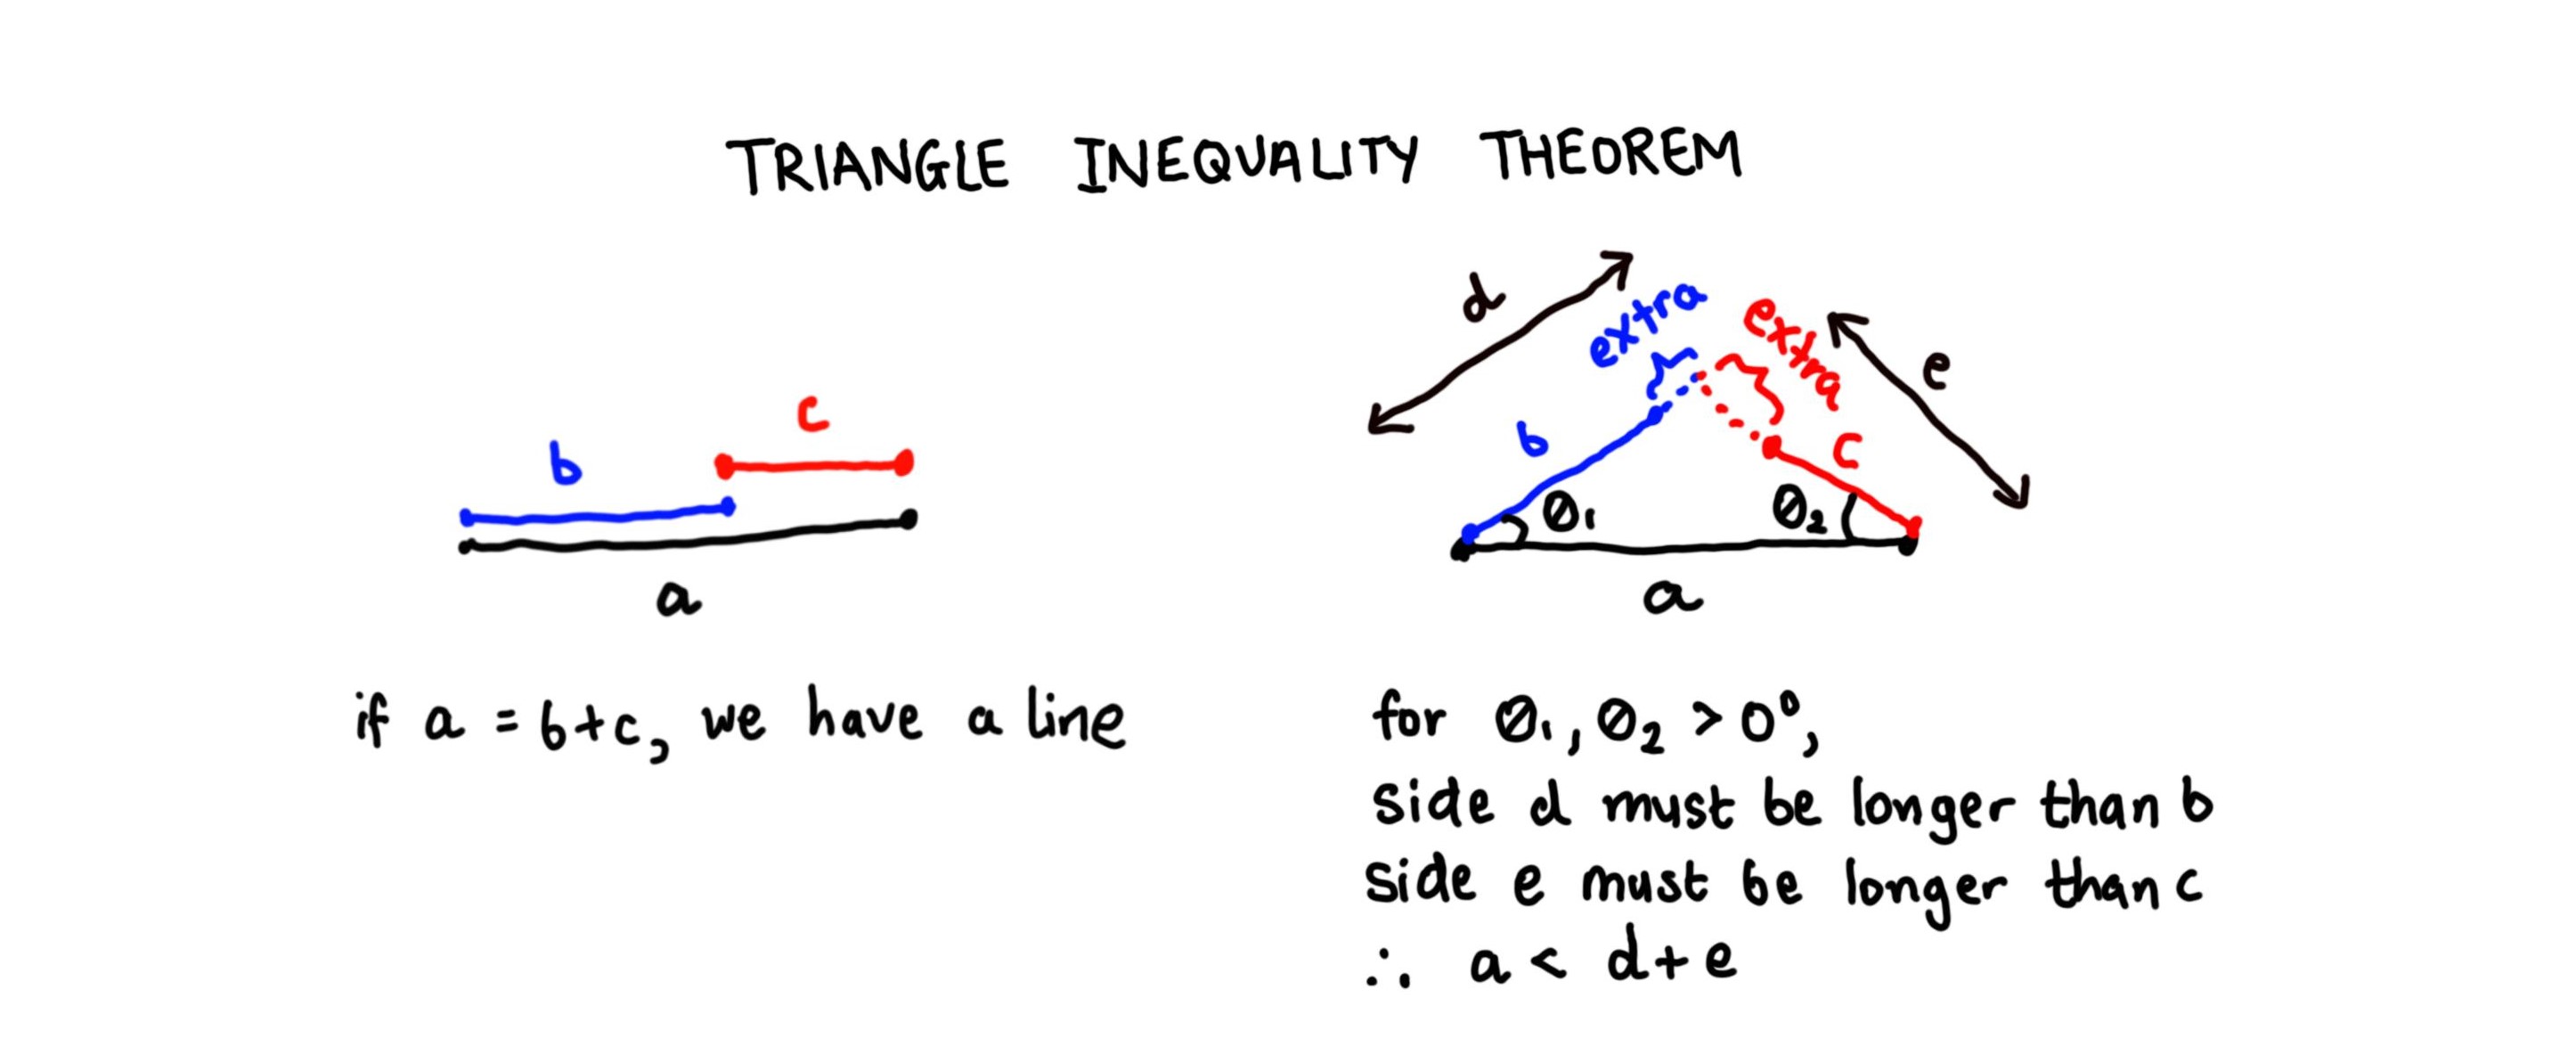 TRIANGLE INEQUALITY THEOREM
b
c
a
if a = b+c, we have a line
d
extra
extra
e
b
c
θ₁
θ₂
a
for θ₁, θ₂ > 0°,
side d must be longer than b
side e must be longer than c
∴ a < d+e